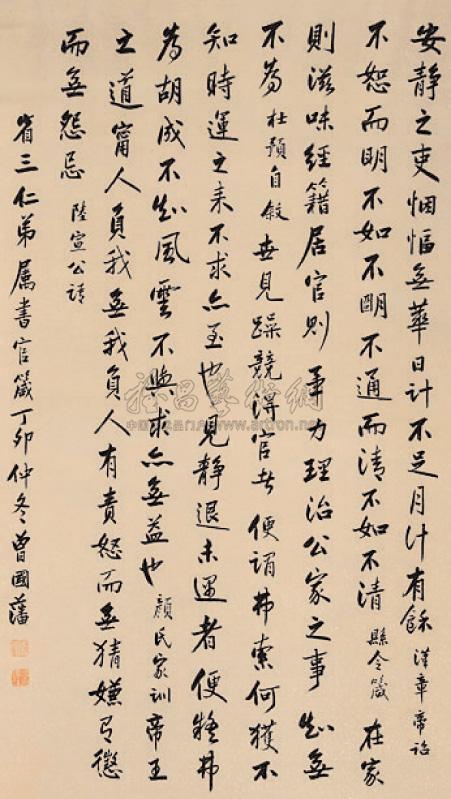 安靜之吏悃愊無華日計不足月計有餘漢章帝詔
不恕而明不如不明不通而清不如不清縣令箴在家
則滋味經籍居官則畢力理治公家之事知無
不為杜預自敘世見躁競得官者便謂弗索何獲不
知時運之来不求亦至也見靜退未遇者便疑弗
為胡成不知風雲不與求亦無益也顏氏家訓帝王
之道甯人負我無我負人有責怒而無猜嫌有懲
而無怨忌陸宣公語
省三仁弟屬書官箴丁卯仲冬曾國藩
雅昌藝術網
www.artron.net